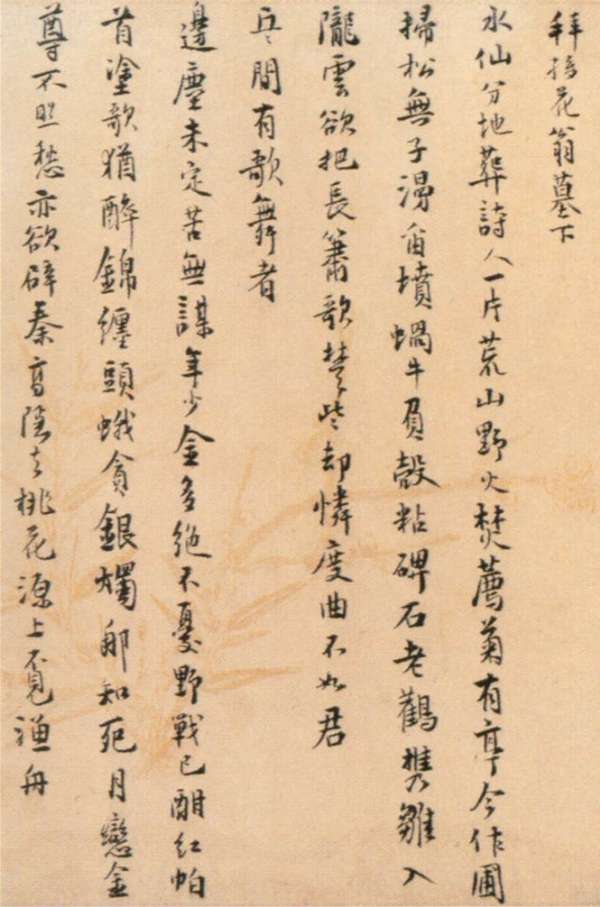 拜孫花翁墓下
水仙分地葬詩人一片荒山野火焚薦菊有亭今作圃
掃松無子漫留墳蝸牛負殼粘碑石老鶴攜雛入
隴雲欲把長簫歌楚些却憐度曲不如君
兵間有歌舞者
邊塵未定苦無謀年少金多絕不憂野戰已酣紅帕
首塗歌猶醉錦纏頭蛾貪銀燭那知死月戀金
尊不照愁亦欲辟秦高隱去桃花源上覓漁舟